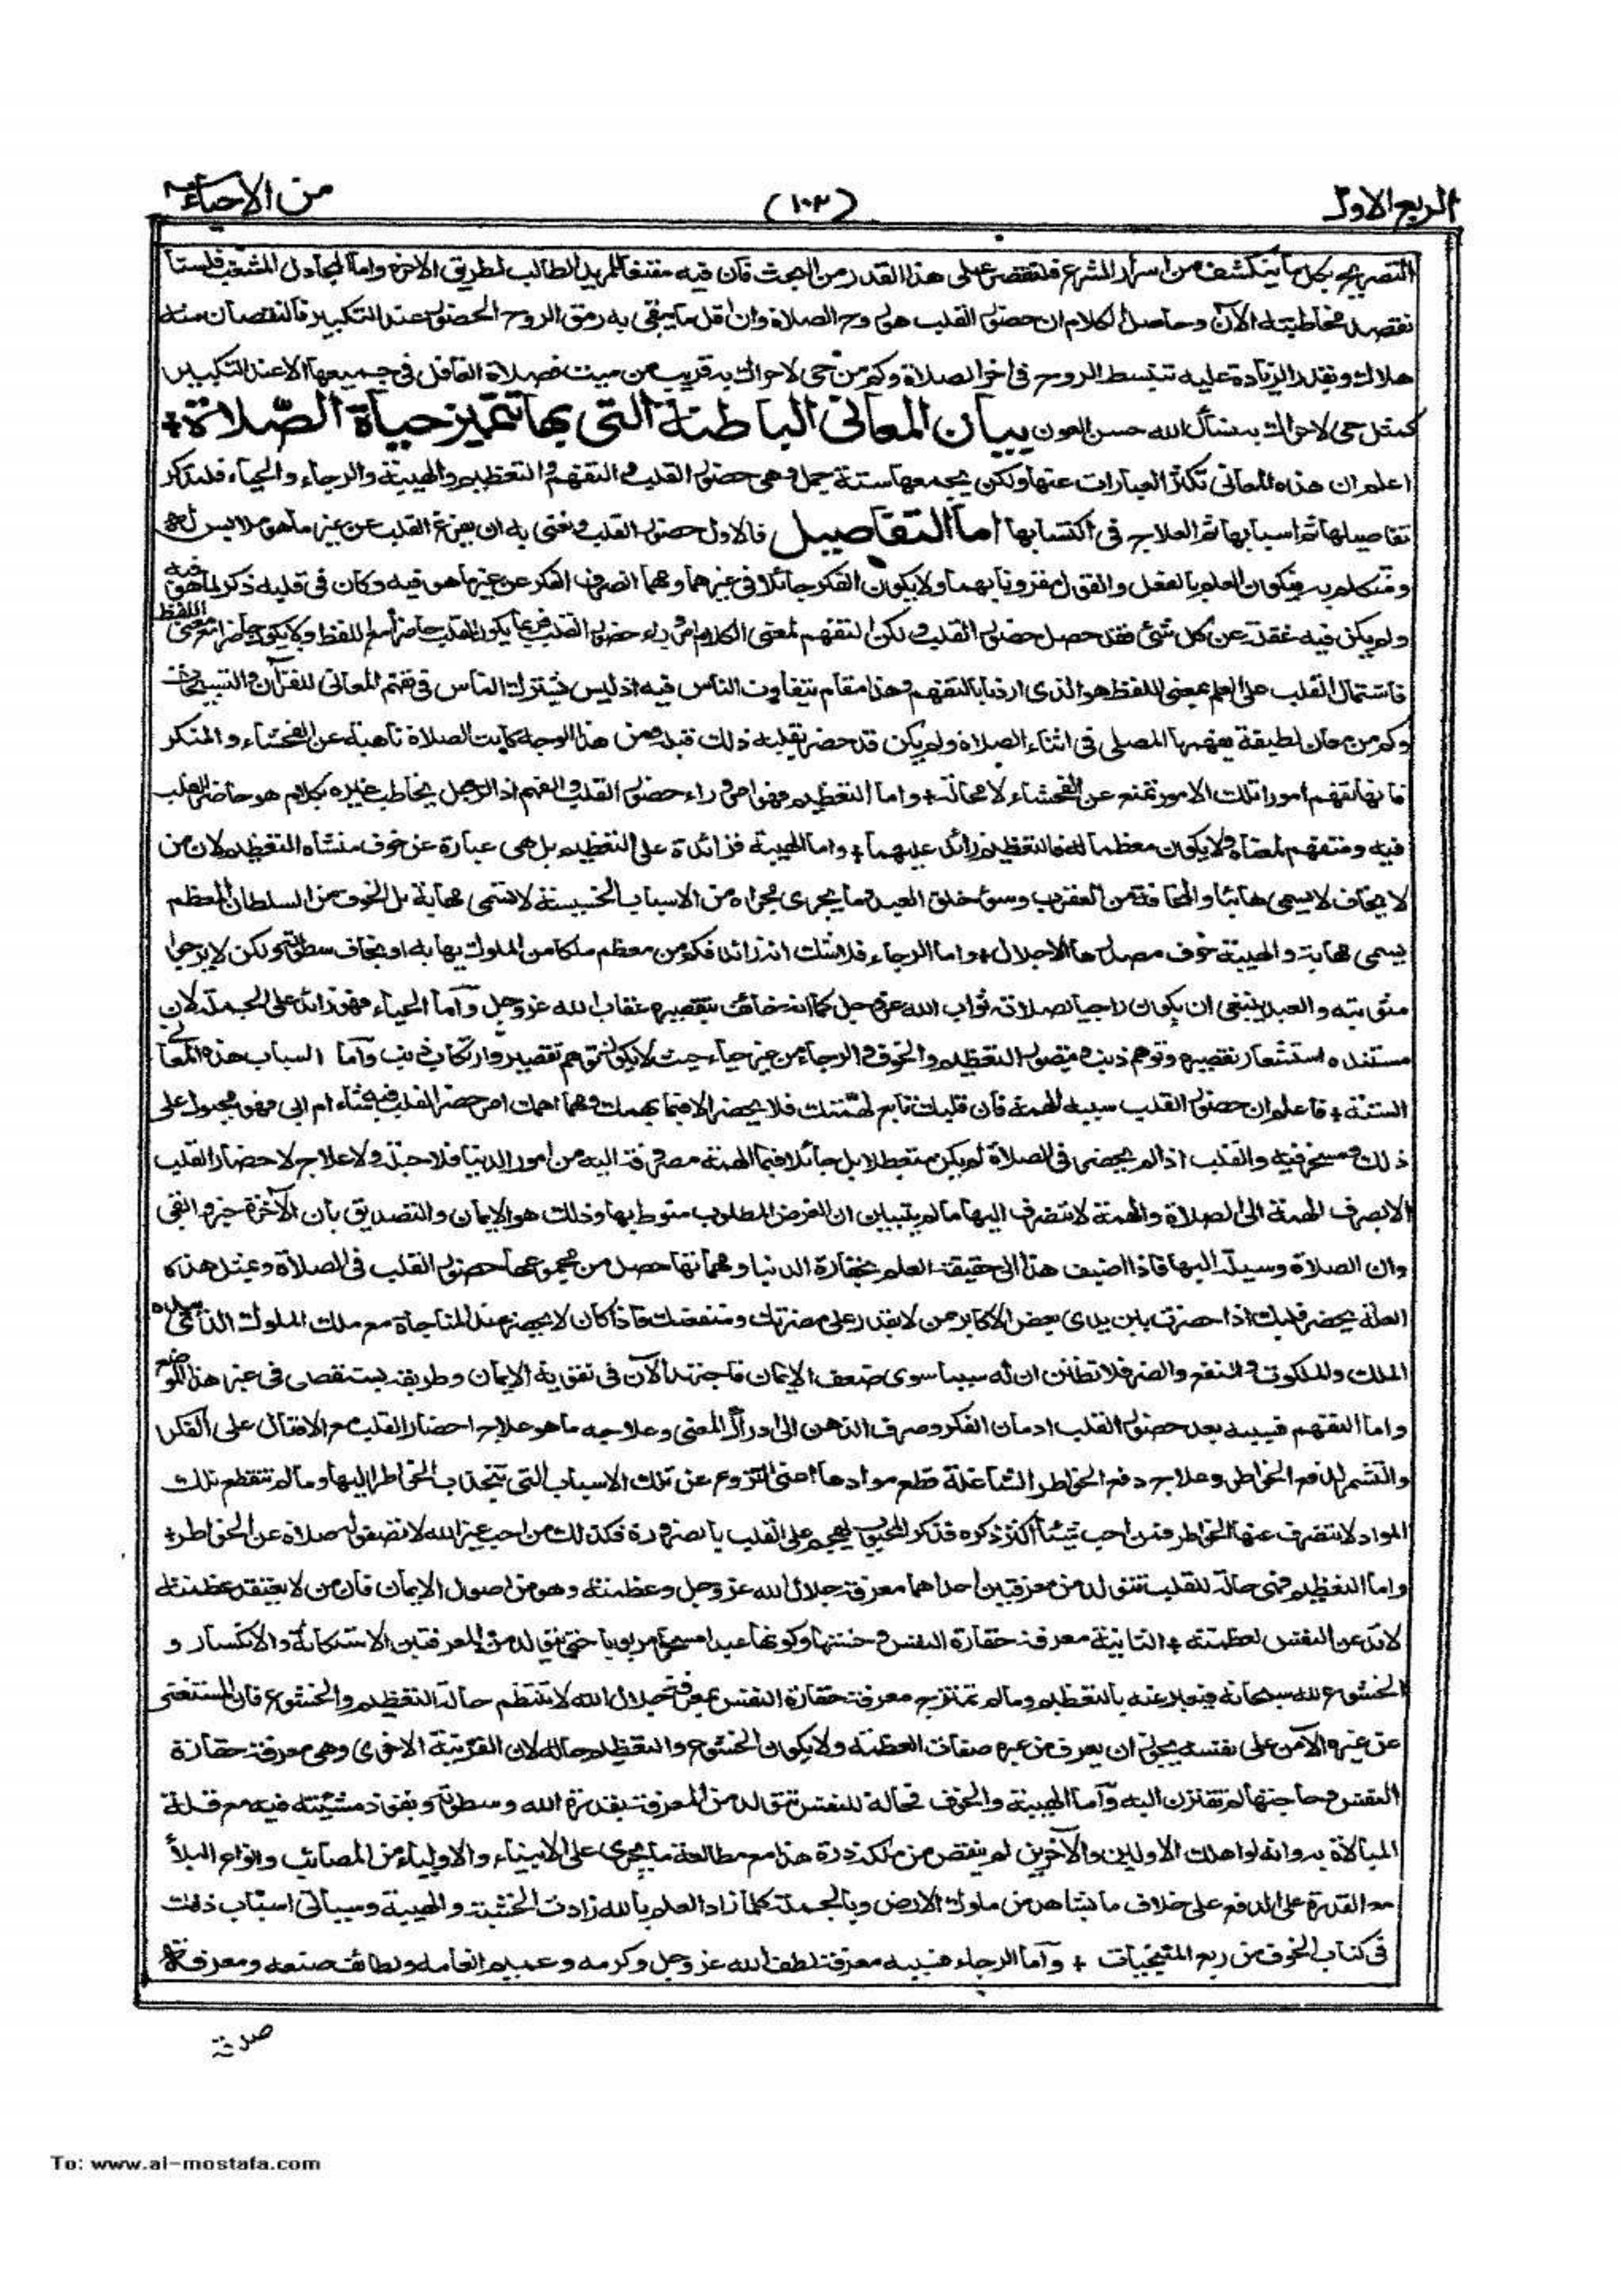 الربع الاول
(١٠٣)
من الاحياء
التصريح بكل ما ينكشف من اسرار الشرع فلنقتصر على هذا القدر من البحث فان فيه مقنعا للمريد الطالب لطريق الاخرة واما المجادل المشغب فلسنا
نقصد مخاطبته الآن وحاصل الكلام ان حضور القلب هو روح الصلاة وان اقل ما يبقى به رمق الروح الحضور عند التكبير فالنقصان منه
هلاك وبقدر الزيادة عليه تنبسط الروح في اخر الصلاة وكم من حي لا حراك به قريب من ميت فصلاة الغافل في جميعها الا عند التكبير
كمثل حي لا حراك به نسأل الله حسن العون بيان المعاني الباطنة التي بها تتميز حياة الصّلاة +
اعلم ان هذه المعاني تكثر العبارات عنها ولكن يجمعها ستة جمل وهي حضور القلب والتفهم والتعظيم والهيبة والرجاء والحياء فلنذكر
تفاصيلها ثم اسبابها ثم العلاج في اكتسابها اما التفاصيل فالاول حضور القلب ونعني به ان يفرغ القلب عن غير ما هو ملابس له
ومتكلم به فيكون العلم بالفعل والقول مقرونا بهما ولا يكون الفكر جائلا في غيرهما ومهما انصرف الفكر عن غير ما هو فيه وكان في قلبه ذكر لما هو فيه
ولم يكن فيه غفلة عن كل شئ فقد حصل حضور القلب ولكن التفهم لمعنى الكلام امر وراء حضور القلب فربما يكون القلب حاضرا مع اللفظ ولا يكون حاضرا مع معنى اللفظ
فاشتمال القلب على العلم بمعنى اللفظ هو الذي اردنا بالتفهم وهذا مقام يتفاوت الناس فيه اذ ليس يشترك الناس في تفهم المعاني للقرآن والتسبيحات
وكم من معان لطيفة يفهمها المصلي في اثناء الصلاة ولم يكن قد حضر بقلبه ذلك قبله ومن هذا الوجه كانت الصلاة ناهية عن الفحشاء والمنكر
فانها تفهم امورا تلك الامور تمنع عن الفحشاء لا محالة + واما التعظيم فهو امر وراء حضور القلب والفهم اذ الرجل يخاطب غيره بكلام هو حاضر القلب
فيه ومتفهم لمعناه ولا يكون معظما له فالتعظيم زائد عليهما + واما الهيبة فزائدة على التعظيم بل هي عبارة عن خوف منشاه التعظيم لان من
لا يخاف لا يسمى هائبا والمخافة من العقرب وسوء خلق العبد وما يجري مجراه من الاسباب الخسيسة لا تسمى مهابة بل الخوف من السلطان المعظم
يسمى مهابة والهيبة خوف مصدرها الاجلال + واما الرجاء فلا شك انه زائد فكم من معظم ملكا من الملوك يهابه او يخاف سطوته ولكن لا يرجوا
مثوبته والعبد ينبغي ان يكون راجيا بصلاته ثواب الله عز وجل كما انه خائف بتقصيره عقاب الله عز وجل واما الحياء فهو زائد على الجملة لان
مستنده استشعار تقصيره وتوهم ذنب ويتصور التعظيم والخوف والرجاء من غير حياء حيث لا يكون توهم تقصير وارتكاب ذنب واما اسباب هذه المعاني
الستة + فاعلم ان حضور القلب سببه الهمة فان قلبك تابع لهمتك فلا يحضر الا فيما يهمك ومهما اهمك امر حضر القلب فيه شاء ام ابى فهو مجبول على
ذلك ومسخر فيه والقلب اذا لم يحضر في الصلاة لم يكن متعطلا بل جائلا فيما الهمة مصروفة اليه من امور الدنيا فلا حيلة ولا علاج لاحضار القلب
الا بصرف الهمة الى الصلاة والهمة لا تنصرف اليها ما لم يتبين ان الغرض المطلوب منوط بها وذلك هو الايمان والتصديق بان الآخرة خير وابقى
وان الصلاة وسيلة اليها فاذا اضيف هذا الى حقيقة العلم بحقارة الدنيا ومهماتها حصل من مجموعها حضور القلب في الصلاة وبمثل هذه
العلة يحضر قلبك اذا حضرت بين يدي بعض الاكابر ممن لا يقدر على مضرتك ومنفعتك فاذا كان لا يحضر عند المناجاة مع ملك الملوك الذي بيده
الملك والملكوت والنفع والضر فلا تظنن ان له سببا سوى ضعف الايمان فاجتهد الآن في تقوية الايمان وطريقه يستقصى في غير هذا الموضع
واما التفهم فسببه بعد حضور القلب ادمان الفكر وصرف الذهن الى ادراك المعنى وعلاجه ما هو علاج احضار القلب مع الاقبال على الفكر
والتشمر لدفع الخواطر وعلاج دفع الخواطر الشاغلة قطع موادها اعني النزوع عن تلك الاسباب التي تنجذب الخواطر اليها وما لم تنقطع تلك
المواد لا تنصرف عنها الخواطر فمن احب شيئا اكثر ذكره فذكر المحبوب يهجم على القلب بالضرورة فكذلك من احب غير الله لا تصفو له صلاة عن الخواطر +
واما التعظيم فهي حالة للقلب تتولد من معرفتين احداهما معرفة جلال الله عز وجل وعظمته وهو من اصول الايمان فان من لا يعتقد عظمته
لا تذعن النفس لعظمته + الثانية معرفة حقارة النفس وخستها وكونها عبدا مسخرا مربوبا حتى يتولد من المعرفتين الاستكانة والانكسار و
الخشوع لله سبحانه فيعبر عنه بالتعظيم وما لم تمتزج معرفة حقارة النفس بمعرفة جلال الله لا تنتظم حالة التعظيم والخشوع فان المستغني
عن غيره الآمن على نفسه يجوز ان يعرف من غيره صفات العظمة ولا يكون الخشوع والتعظيم حاله لان القرينة الاخرى وهي معرفة حقارة
النفس وحاجتها لم تقترن اليه واما الهيبة والخوف فحالة للنفس تتولد من المعرفة بقدرة الله وسطوته ونفوذ مشيئته فيه مع قلة
المبالاة به وانه لو اهلك الاولين والآخرين لم ينقص من ملكه ذرة هذا مع مطالعة ما يجري على الانبياء والاولياء من المصائب وانواع البلاء
مع القدرة على الدفع على خلاف ما يشاهد من ملوك الارض وبالجملة كلما زاد العلم بالله زادت الخشية والهيبة وسياتي اسباب ذلك
في كتاب الخوف من ربع المنجيات + واما الرجاء فسببه معرفة لطف الله عز وجل وكرمه وعميم انعامه ولطائف صنعه ومعرفة
صدقه
To: www.al-mostafa.com